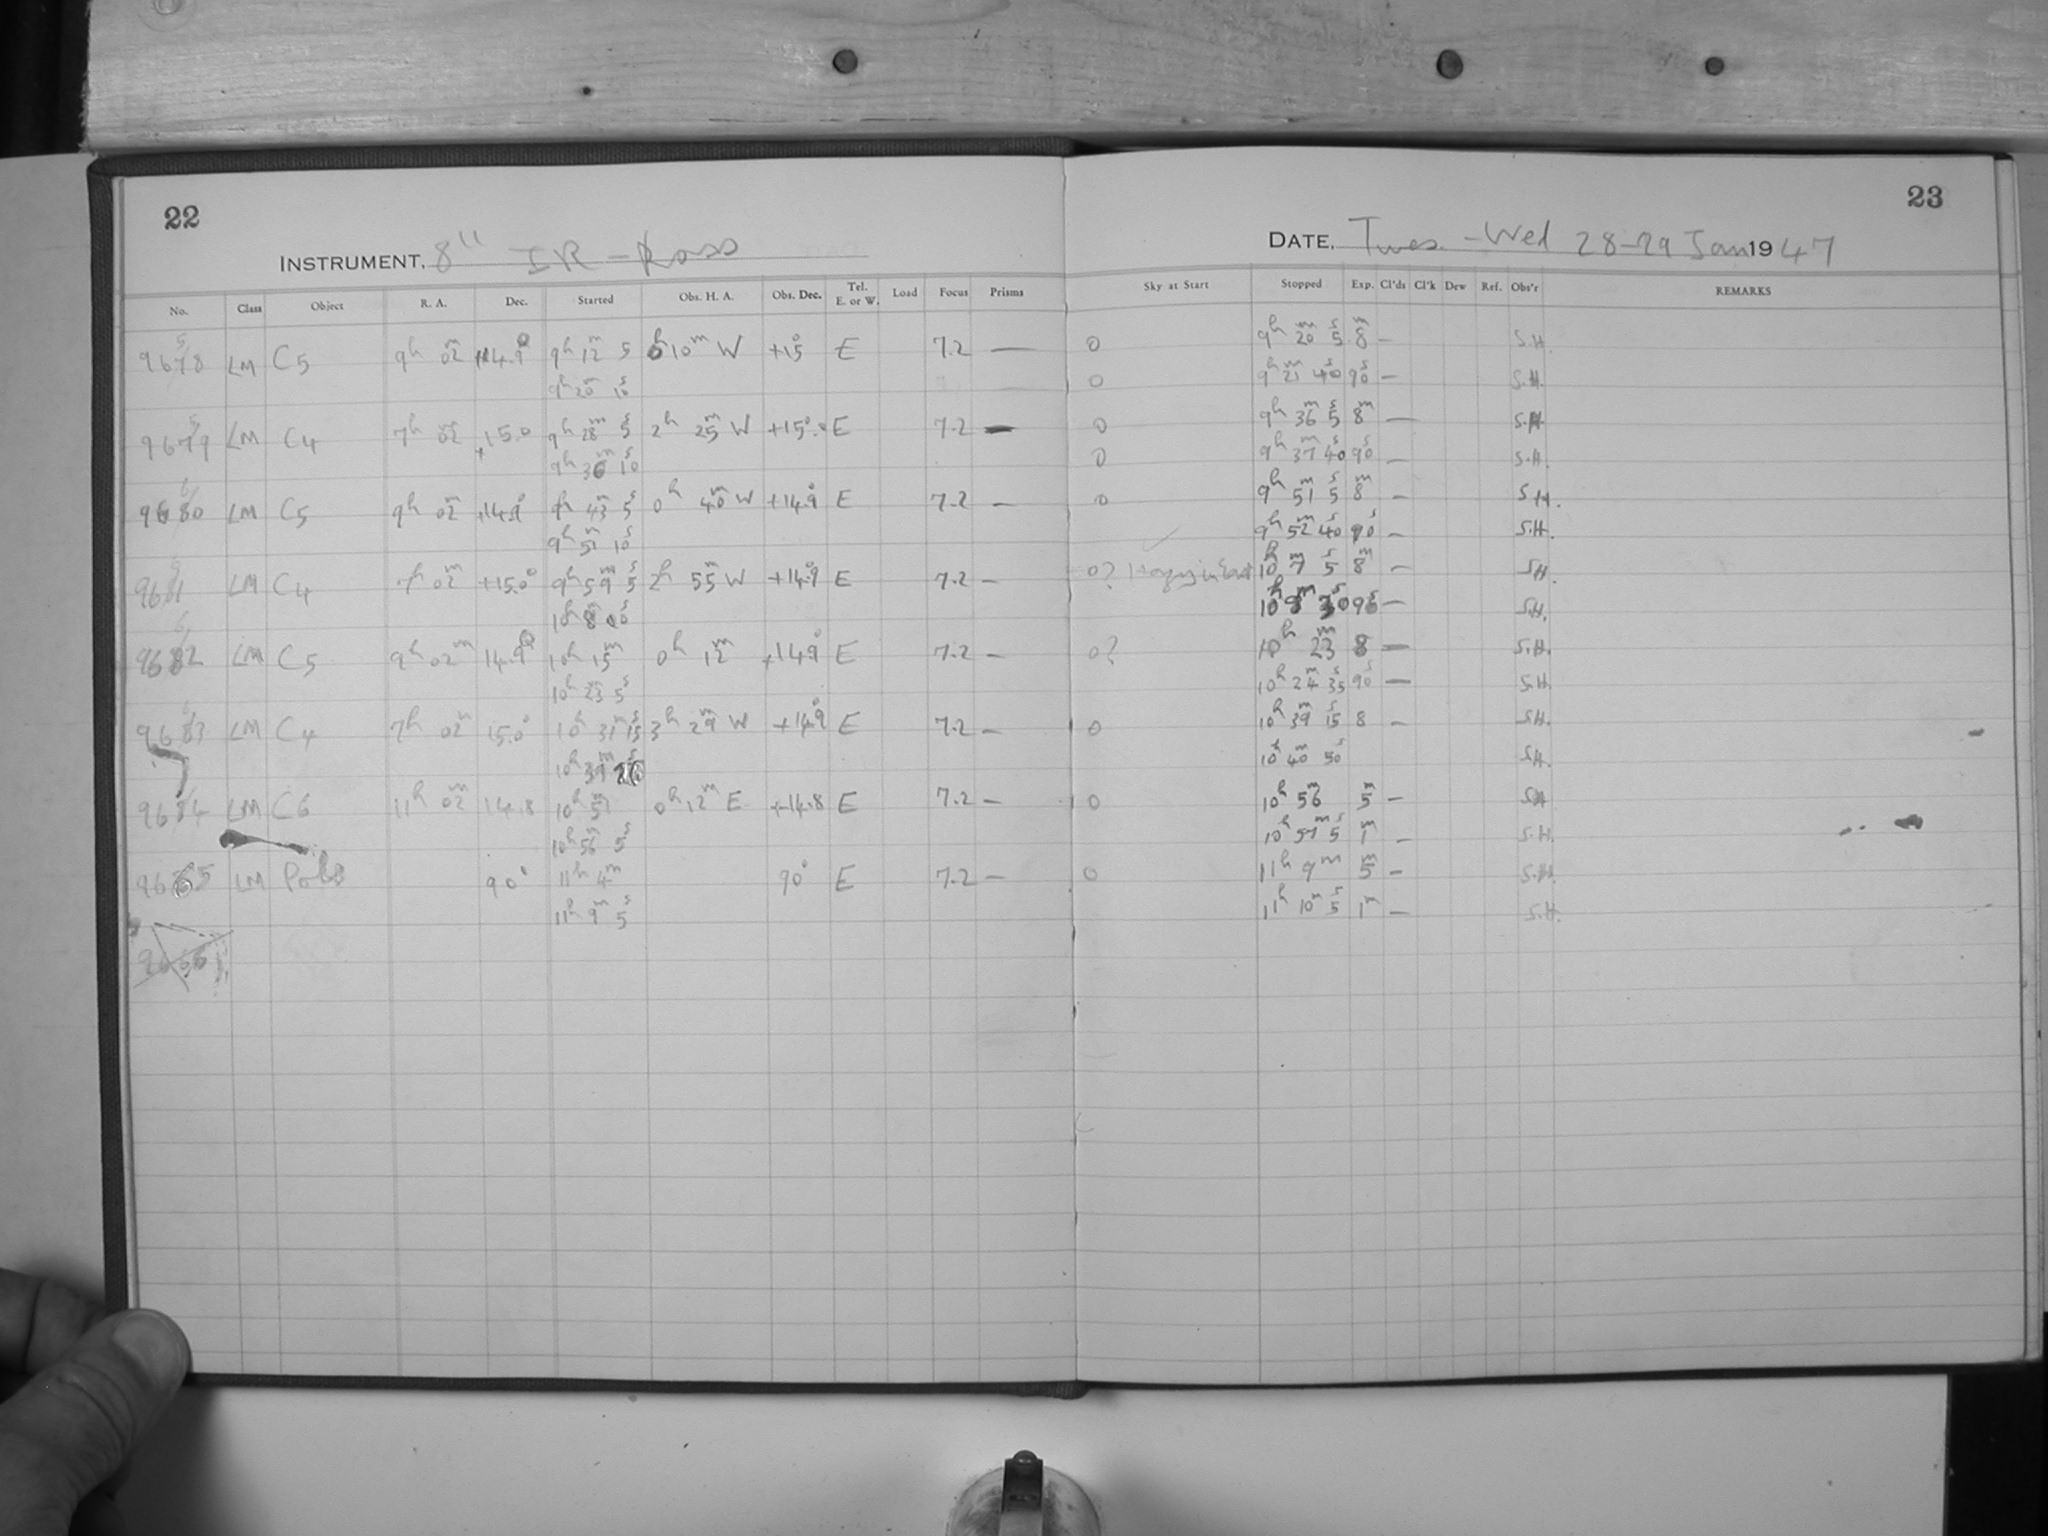 22
23
INSTRUMENT, 8" IR - Ross
DATE, Tues. - Wed 28-29 Jan 1947
No. Class Object R. A. Dec. Started Obs. H. A. Obs. Dec. Tel. E. or W. Load Focus Prisms Sky at Start Stopped Exp. Cl'ds Cl'k Dew Ref. Obs'r REMARKS
9678 LM C5 9h 02m +14.9° 9h 12m 5 0h 10m W +15° E 7.2 — 0 9h 20m 5s 8m — S.H.
9h 20m 10s 0 9h 21m 40s 90s — S.H.
9679 LM C4 7h 02m +15.0 9h 28m 5s 2h 25m W +15°.0 E 7.2 — 0 9h 36m 5s 8m — S.H.
9h 36m 10s 0 9h 37m 40s 90s — S.H.
9680 LM C5 9h 02m +14.9° 9h 43m 5s 0h 40m W +14.9° E 7.2 — 0 9h 51m 5s 8m — S.H.
9h 51m 10s 9h 52m 40s 90s — S.H.
9681 LM C4 7h 02m +15.0° 9h 59m 5s 2h 55m W +14.9° E 7.2 — 0? 10h 7m 5s 8m — S.H.
10h 8m 00s 10h 9m 30 90s — S.H.
9682 LM C5 9h 02m 14.9° 10h 15m 0h 12m +14.9° E 7.2 — 0? 10h 23m 8 — S.H.
10h 23m 5s 10h 24m 35s 90s — S.H.
9683 LM C4 7h 02m 15.0° 10h 31m 15s 3h 29m W +14.9° E 7.2 — 0 10h 39m 15s 8 — S.H.
10h 39m 10h 40m 50s S.H.
9684 LM C6 11h 02m 14.8 10h 51m 0h 12m E +14.8 E 7.2 — 0 10h 56m 5m — S.H.
10h 56m 5s 10h 57m 5s 1m — S.H.
9685 LM Pole 90° 11h 4m 90° E 7.2 — 0 11h 9m 5m — S.H.
11h 9m 5s 11h 10m 5s 1m — S.H.